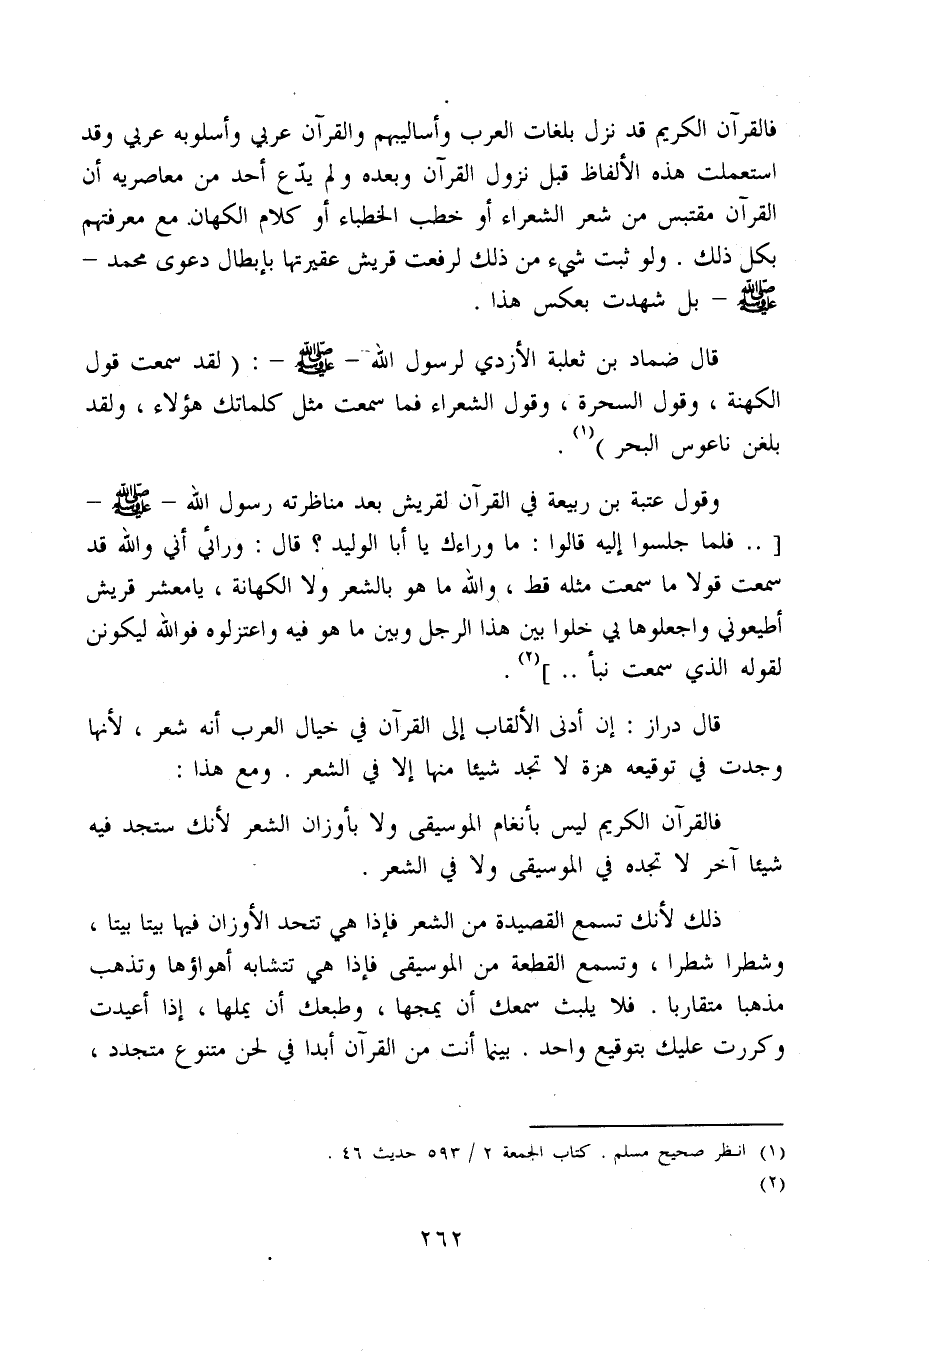 فالقرآن الكريم قد نزل بلغات العرب وأساليبهم والقرآن عربي وأسلوبه عربي وقد
استعملت هذه الألفاظ قبل نزول القرآن وبعده ولم يدّع أحد من معاصريه أن
القرآن مقتبس من شعر الشعراء أو خطب الخطباء أو كلام الكهان. مع معرفتهم
بكل ذلك . ولو ثبت شيء من ذلك لرفعت قريش عقيرتها بإبطال دعوى محمد –
ﷺ – بل شهدت بعكس هذا .
قال ضماد بن ثعلبة الأزدي لرسول الله – ﷺ – : ( لقد سمعت قول
الكهنة ، وقول السحرة ، وقول الشعراء فما سمعت مثل كلماتك هؤلاء ، ولقد
بلغن ناعوس البحر )(١) .
وقول عتبة بن ربيعة في القرآن لقريش بعد مناظرته رسول الله – ﷺ –
[ .. فلما جلسوا إليه قالوا : ما وراءك يا أبا الوليد ؟ قال : ورائي أني والله قد
سمعت قولا ما سمعت مثله قط ، والله ما هو بالشعر ولا الكهانة ، يامعشر قريش
أطيعوني واجعلوها بي خلوا بين هذا الرجل وبين ما هو فيه واعتزلوه فوالله ليكونن
لقوله الذي سمعت نبأ .. ](٢) .
قال دراز : إن أدنى الألقاب إلى القرآن في خيال العرب أنه شعر ، لأنها
وجدت في توقيعه هزة لا تجد شيئا منها إلا في الشعر . ومع هذا :
فالقرآن الكريم ليس بأنغام الموسيقى ولا بأوزان الشعر لأنك ستجد فيه
شيئا آخر لا تجده في الموسيقى ولا في الشعر .
ذلك لأنك تسمع القصيدة من الشعر فإذا هي تتحد الأوزان فيها بيتا بيتا ،
وشطرا شطرا ، وتسمع القطعة من الموسيقى فإذا هي تتشابه أهواؤها وتذهب
مذهبا متقاربا . فلا يلبث سمعك أن يمجها ، وطبعك أن يملها ، إذا أعيدت
وكررت عليك بتوقيع واحد . بينما أنت من القرآن أبدا في لحن متنوع متجدد ،
(١) انظر صحيح مسلم . كتاب الجمعة ٢ / ٥٩٣ حديث ٤٦ .
(٢)
٢٦٢